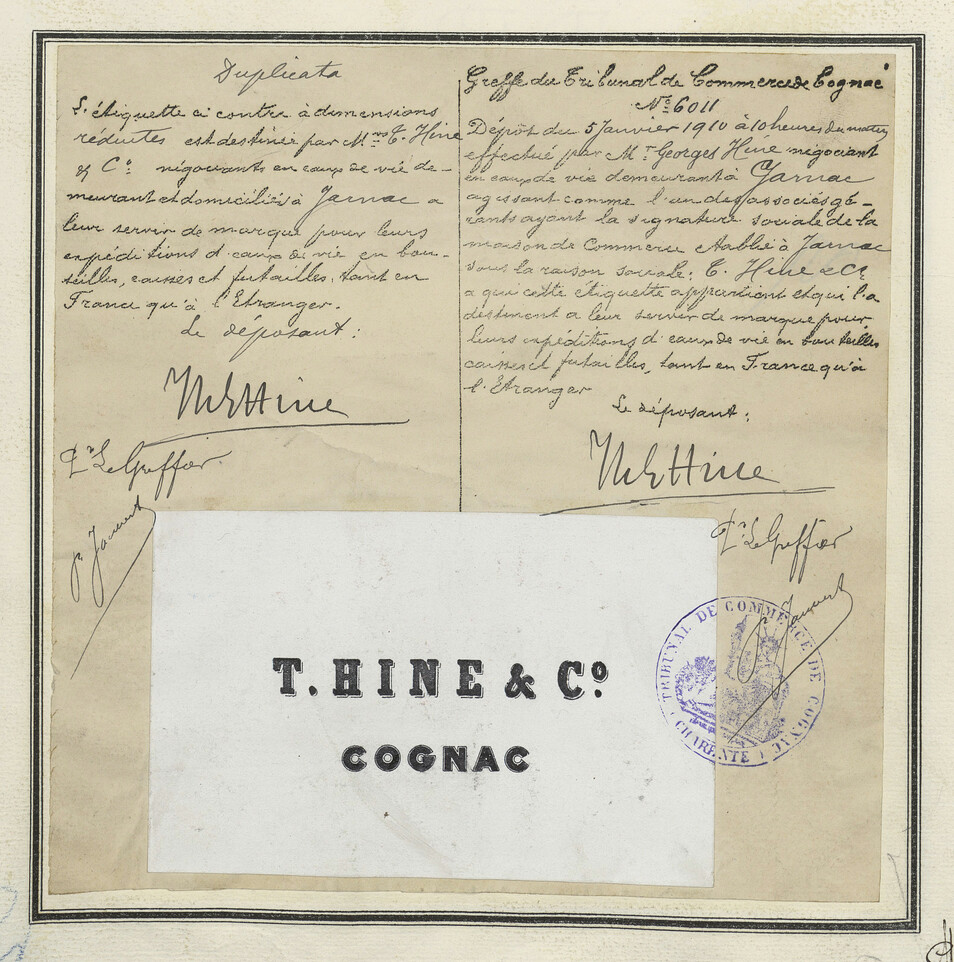 Duplicata
L'étiquette ci contre à dimensions
réduites est destinée par M.rs T. Hine
& Co. négociants en eaux de vie de-
meurant et domiciliés à Jarnac a
leur servir de marque pour leurs
expéditions d'eaux de vie en bou-
teilles, caisses et futailles, tant en
France qu'à l'Etranger.
Le déposant:
Hine
Pr Le Greffier
Greffe du Tribunal de Commerce de Cognac
No. 6011
Dépôt du 5 Janvier 1910 à 10 heures du matin
effectué par Mr Georges Hine négociant
en eaux de vie demeurant à Jarnac
agissant comme l'un des associés gé-
rants ayant la signature sociale de la
maison de Commerce établie à Jarnac
sous la raison sociale: T. Hine & Co.
a qui cette etiquette appartient et qui l'a
destinent a leur servir de marque pour
leurs expéditions d'eaux de vie en bouteilles
caisses et futailles, tant en France qu'à
l'Etranger
Le déposant:
Hine
Pr Le Greffier
T. HINE & Co.
COGNAC
TRIBUNAL DE COMMERCE DE COGNAC
CHARENTE